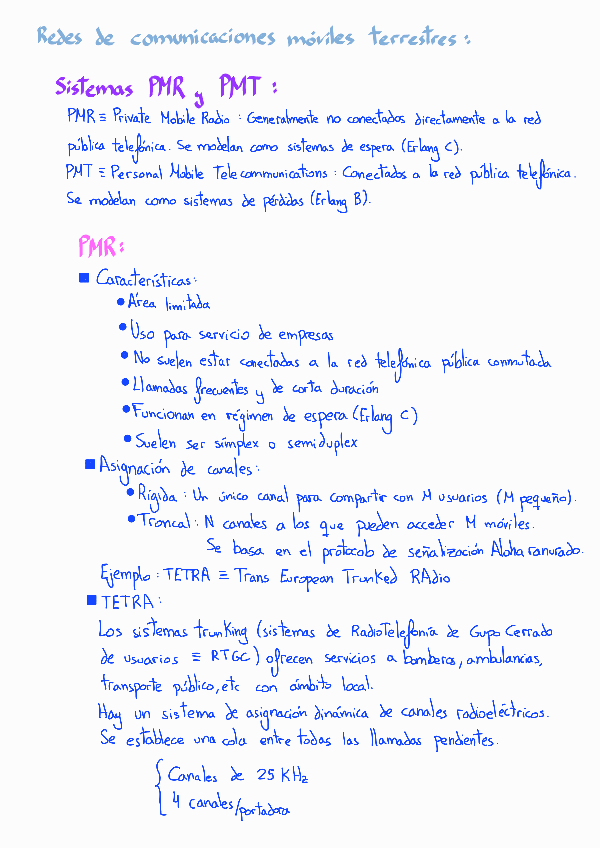 Redes de comunicaciones móviles terrestres:
Sistemas PMR y PMT:
PMR ≡ Private Mobile Radio: Generalmente no conectados directamente a la red
pública telefónica. Se modelan como sistemas de espera (Erlang C).
PMT ≡ Personal Mobile Telecommunications: Conectados a la red pública telefónica.
Se modelan como sistemas de pérdidas (Erlang B).
PMR:
■ Características:
• Área limitada
• Uso para servicio de empresas
• No suelen estar conectadas a la red telefónica pública conmutada
• Llamadas frecuentes y de corta duración
• Funcionan en régimen de espera (Erlang C)
• Suelen ser símplex o semiduplex
■ Asignación de canales:
• Rígida: Un único canal para compartir con M usuarios (M pequeño).
• Troncal: N canales a los que pueden acceder M móviles.
Se basa en el protocolo de señalización Aloha ranurado.
Ejemplo: TETRA ≡ Trans European Trunked RAdio
■ TETRA:
Los sistemas trunking (sistemas de RadioTelefonía de Gupo Cerrado
de usuarios ≡ RTGC) ofrecen servicios a bomberos, ambulancias,
transporte público, etc con ámbito local.
Hay un sistema de asignación dinámica de canales radioeléctricos.
Se establece una cola entre todas las llamadas pendientes.
{ Canales de 25 KHz
4 canales/portadora